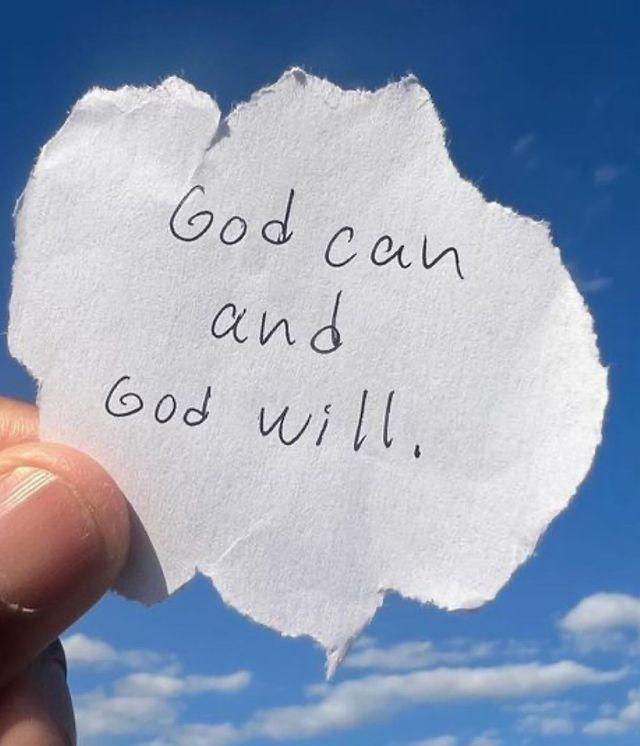 God can
and
God will.